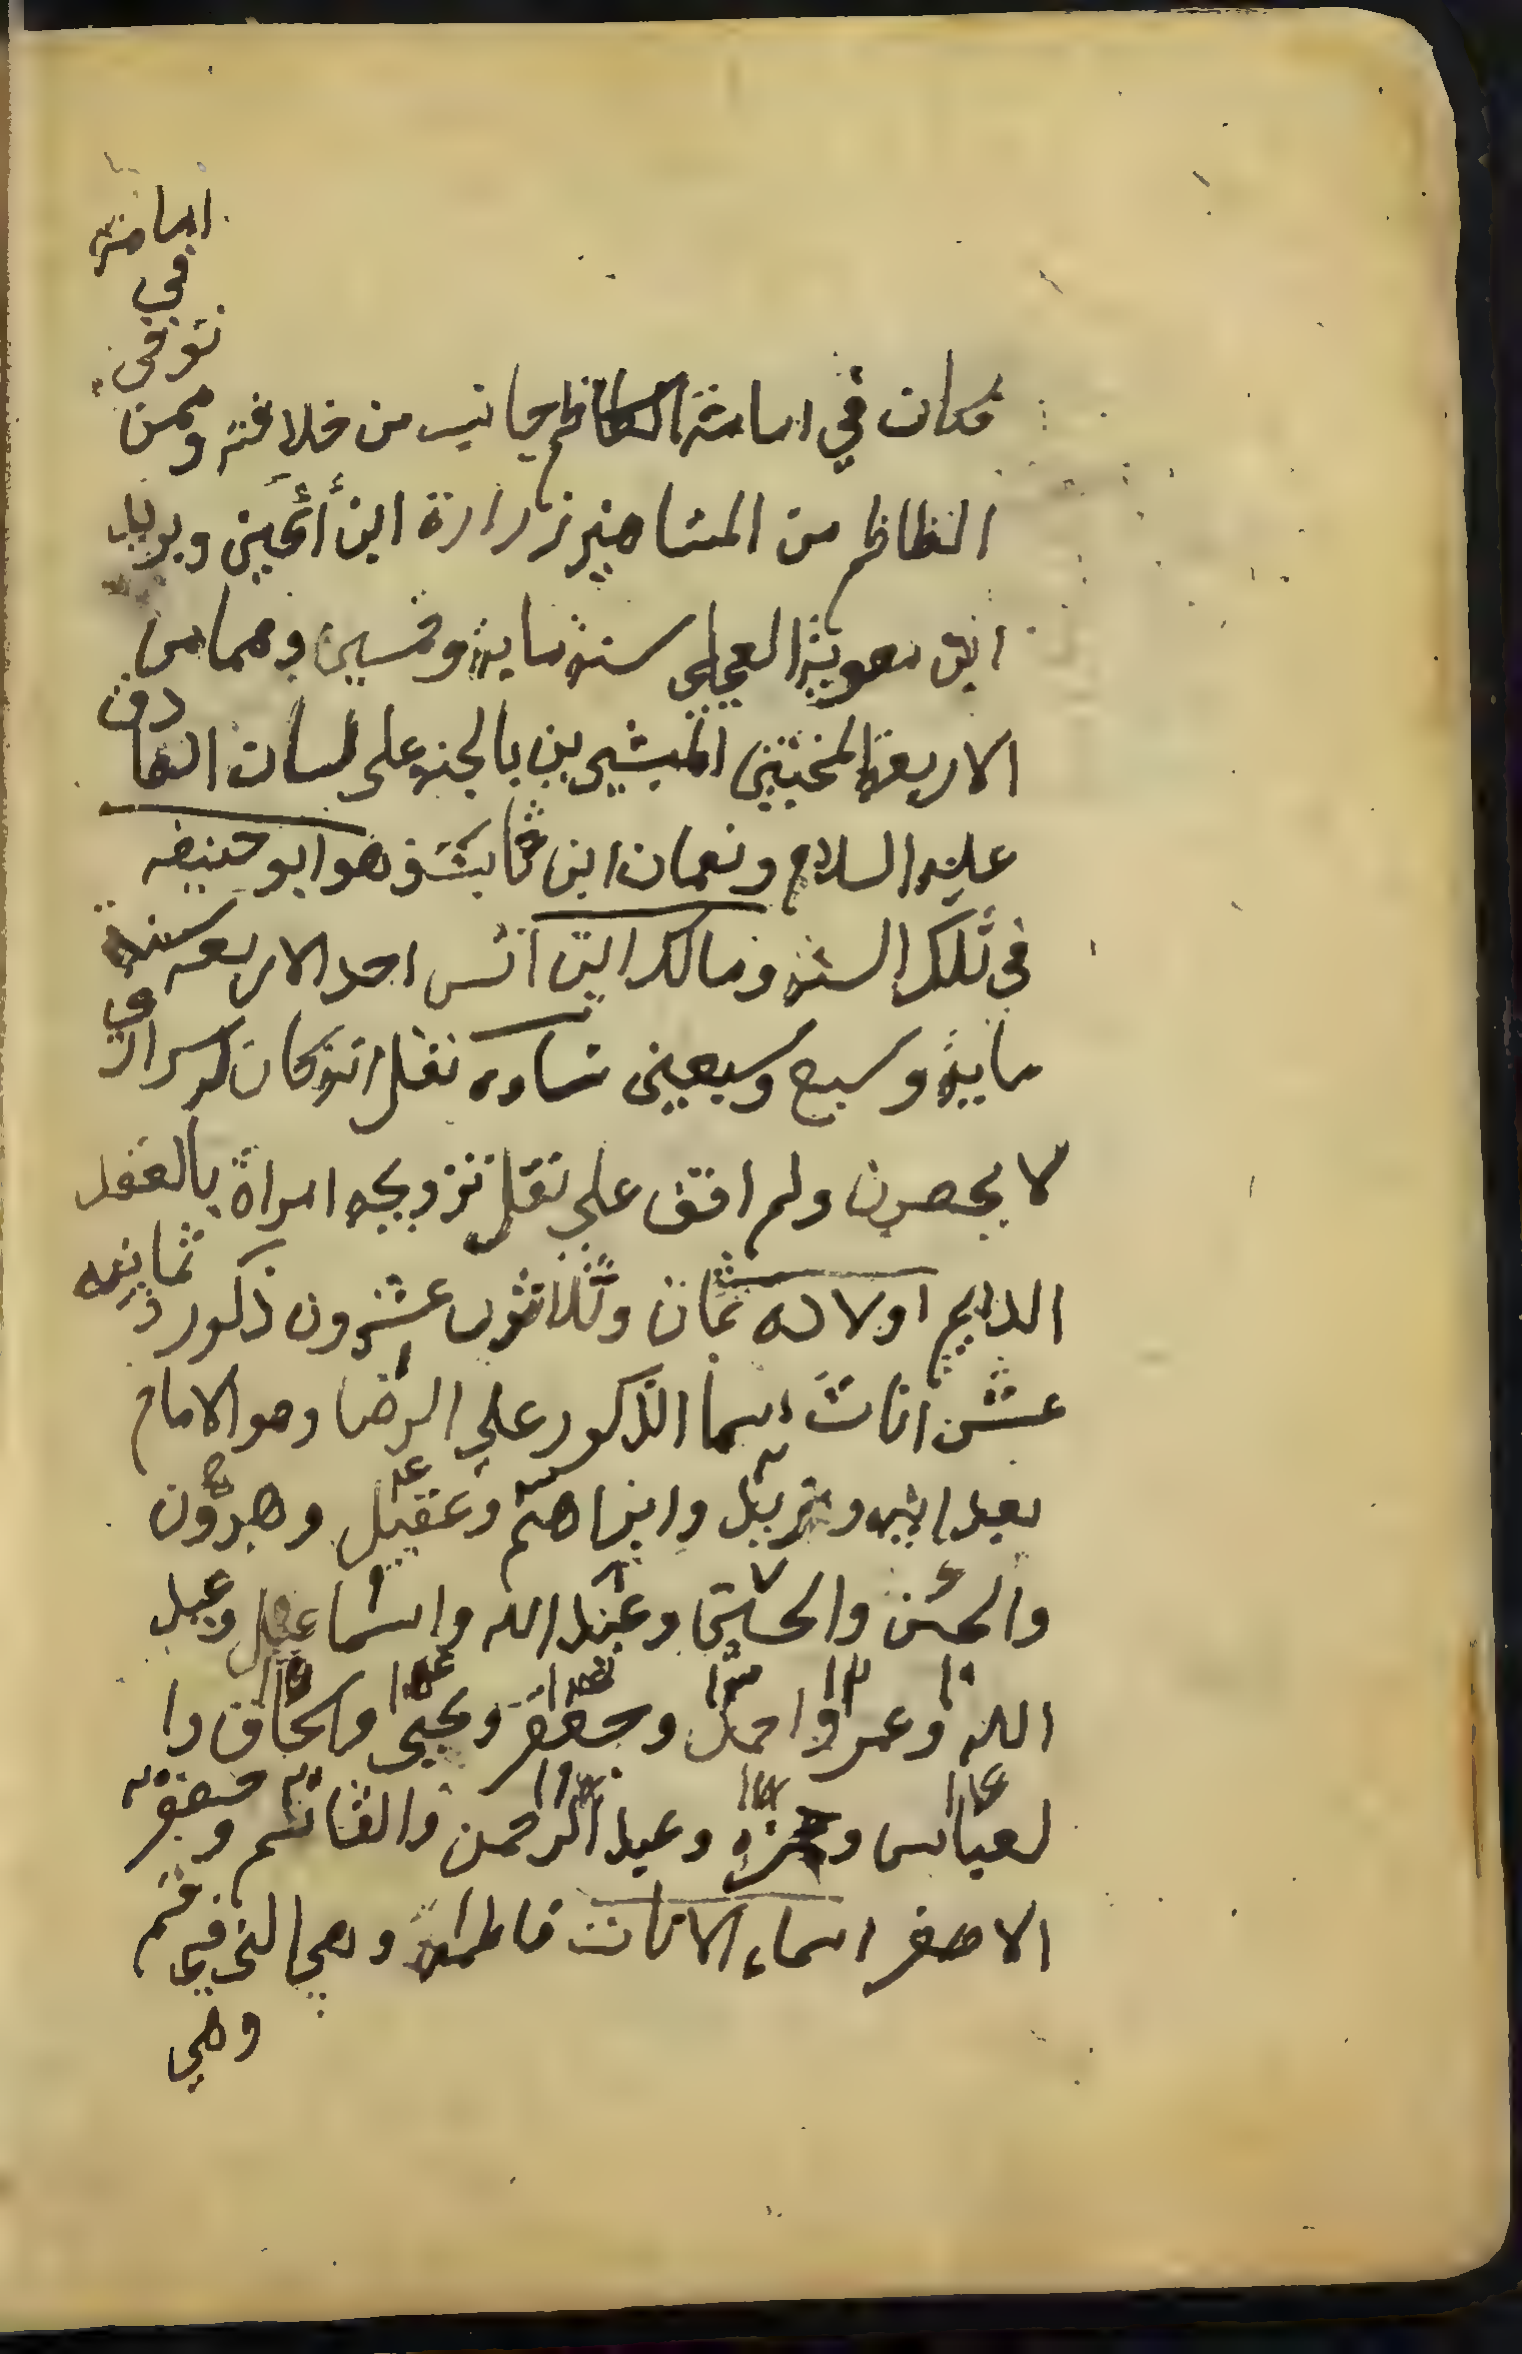 فكان في امامة الكاظم جانب من خلافته وممن
توفى
في
امامة
الظاظم من المشاهير زرارة ابن أعين وبريد
ابن معوية العجلي سنة ماية وخمسين وهما من
الاربعة المخبتين المبشرين بالجنة على لسان الصادق
عليه السلام ونعمان ابن ثابت وهو ابو حنيفه
في تلك السنة ومالك ابن انس احد الاربعه سنة
ماية وسبع وسبعين نساوه نقل انه كان له سراري
لا يحصرن ولم اقف على نقل تزويجه امراة بالعقد
الدايم اولاده ثمان وثلاثون عشرون ذكور وثمانيه
عشر اناث اسما الذكور علي الرضا وهو الامام
بعد ابيه وزيد وابراهيم وعقيل وهرون
والحسن والحسين وعبد الله واسماعيل وعبيد
الله وعمر واحمد وجعفر ويحيى واسحاق وا
لعباس وحمزه وعبد الرحمن والقاسم وجعفر
الاصغر اسماء الاناث فاطمة وهي التي في قم
وهي